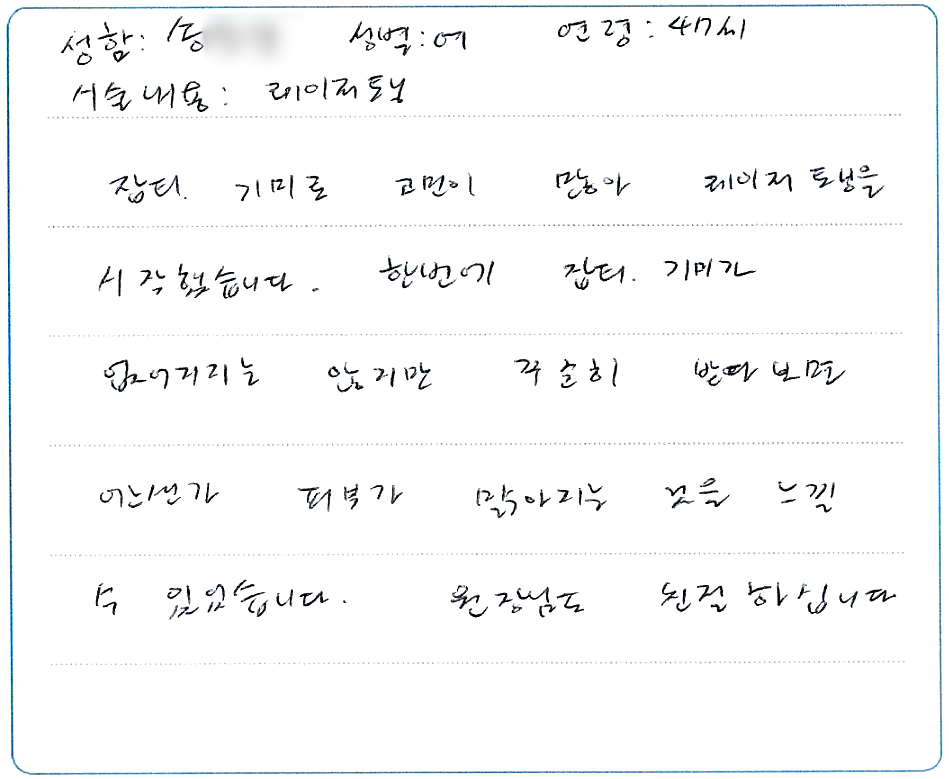 성함: 송 성별: 여 연령: 47세
시술내용: 레이저토닝
잡티. 기미로 고민이 많아 레이저 토닝을
시작했습니다. 한번에 잡티. 기미가
없어지지는 않지만 꾸준히 받다보면
어느샌가 피부가 맑아지는 것을 느낄
수 있었습니다. 원장님도 친절하십니다